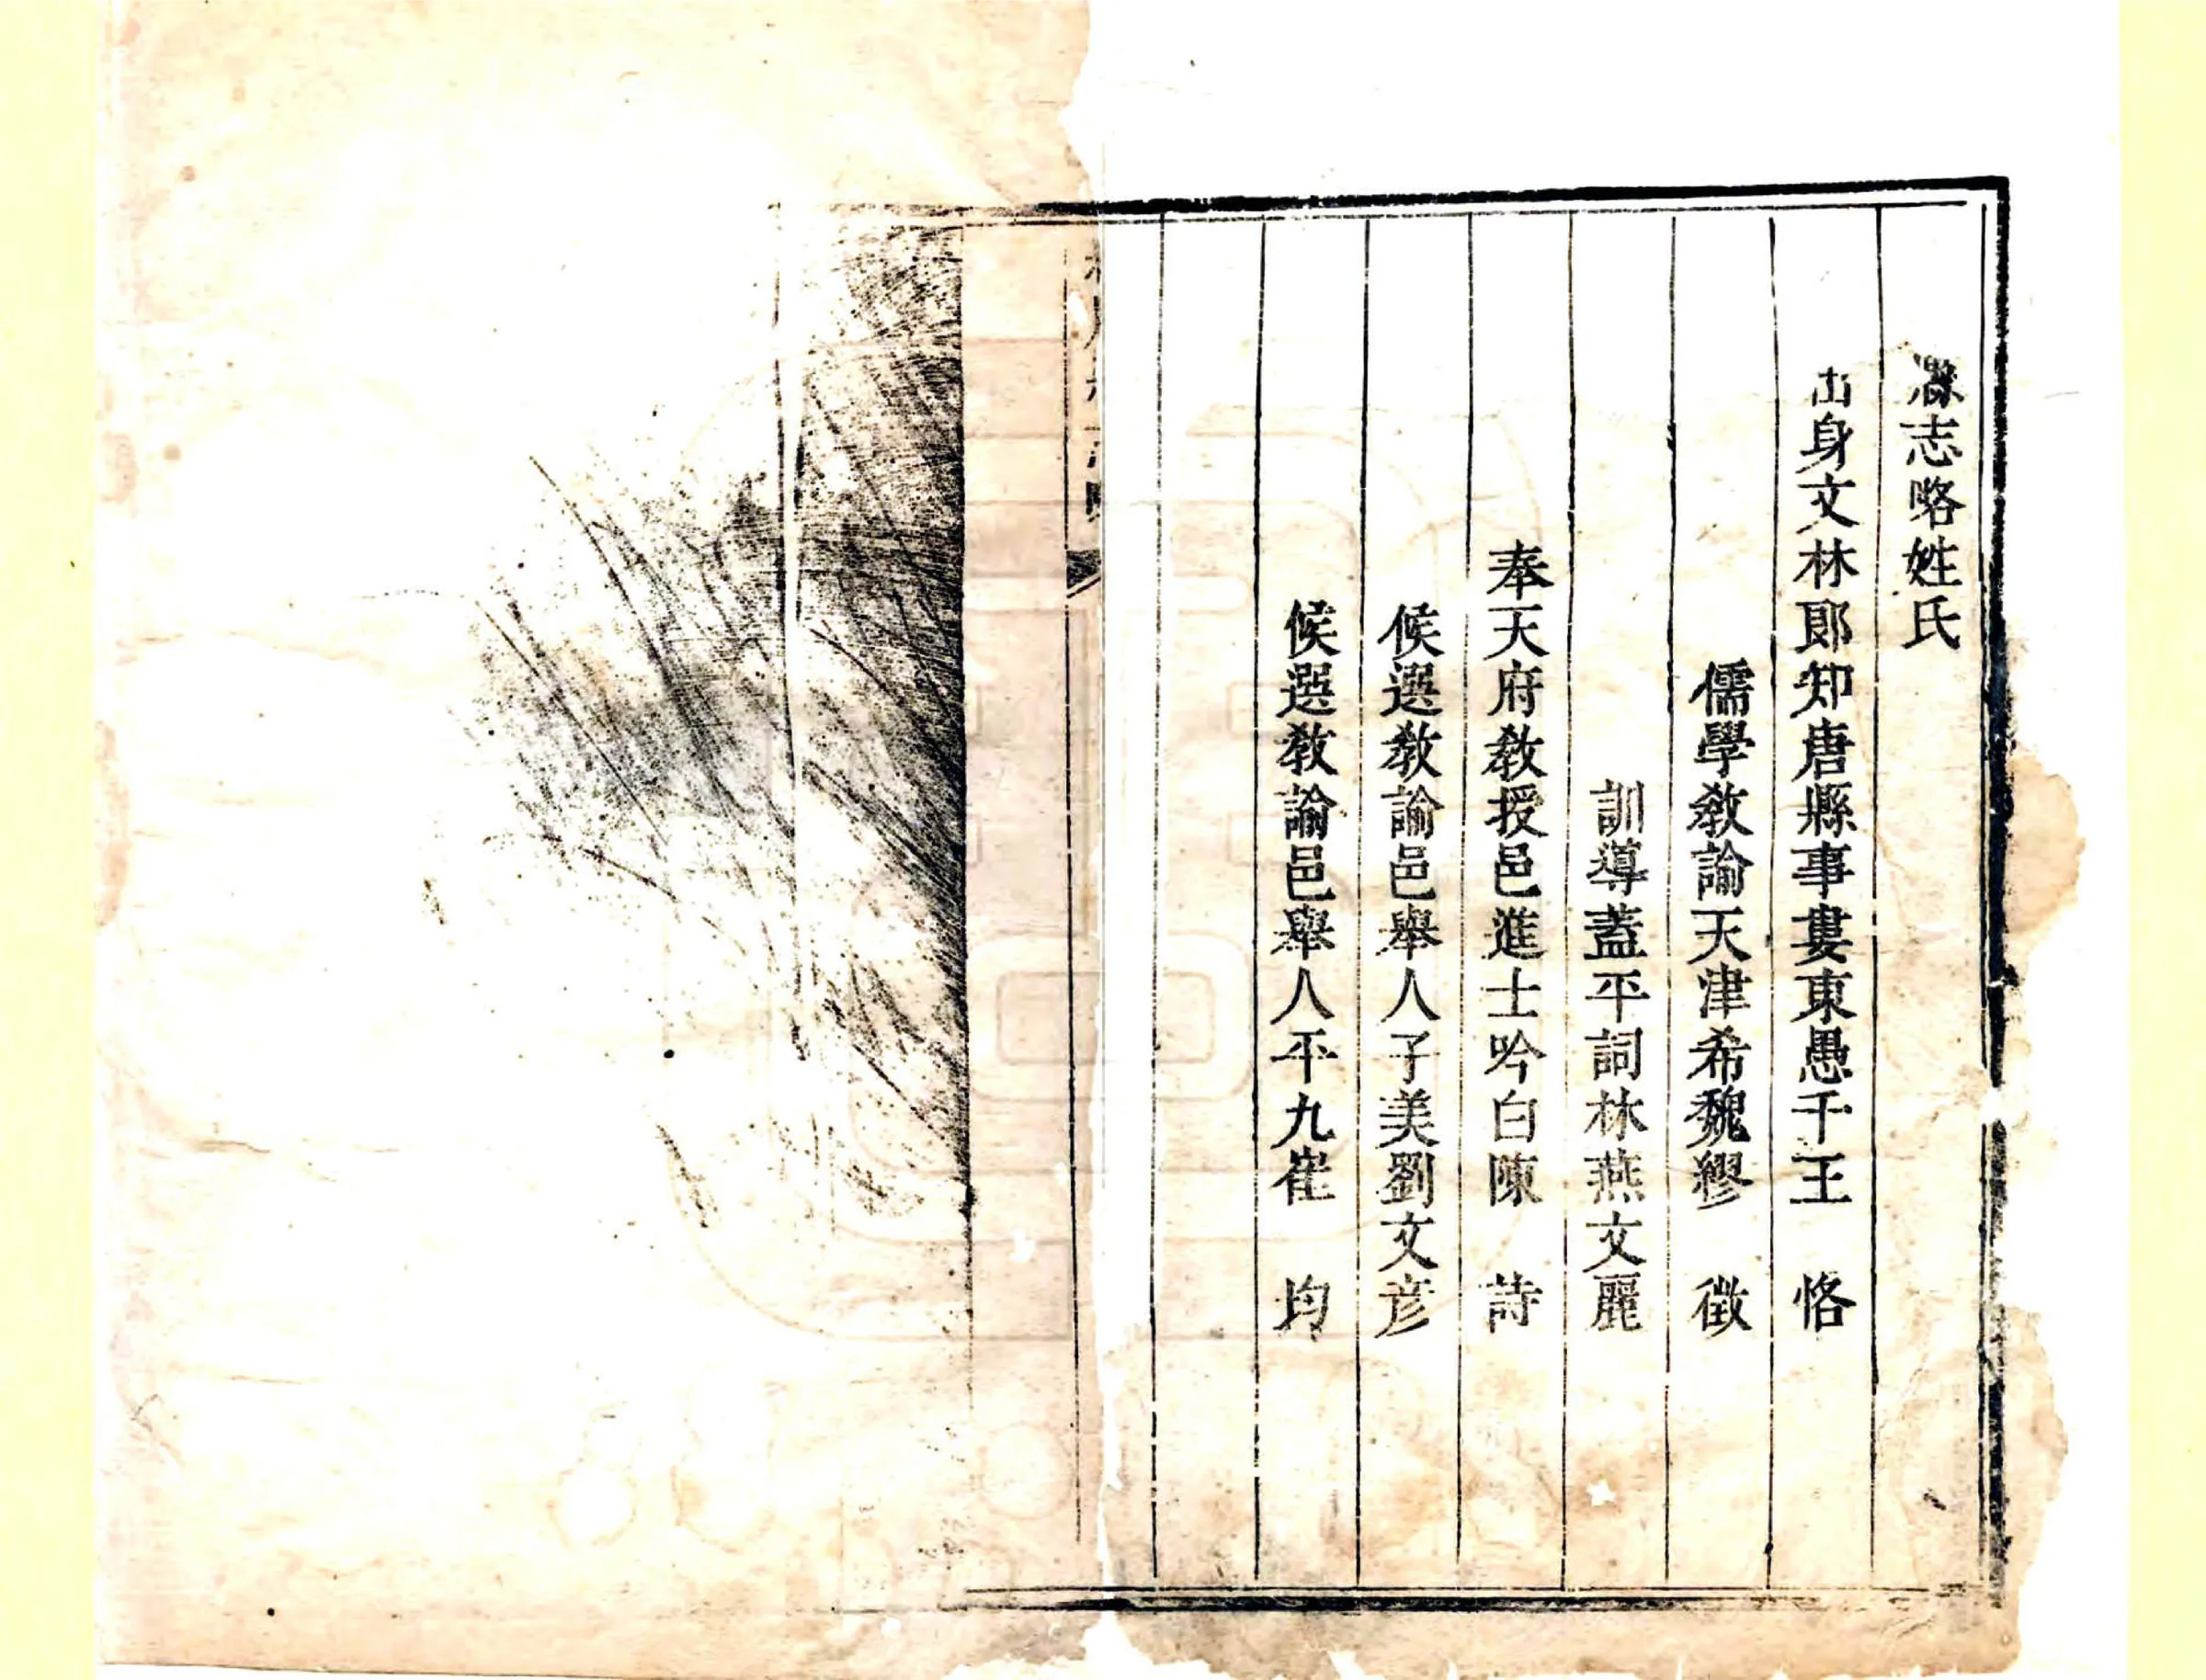 縣志略姓氏
出身文林郎知唐縣事婁東愚千王　恪
儒學教諭天津希魏繆　徵
訓導蓋平詞林燕文麗
奉天府教授邑進士吟白陳　詩
候選教諭邑舉人子美劉文彥
候選教諭邑舉人平九崔　均